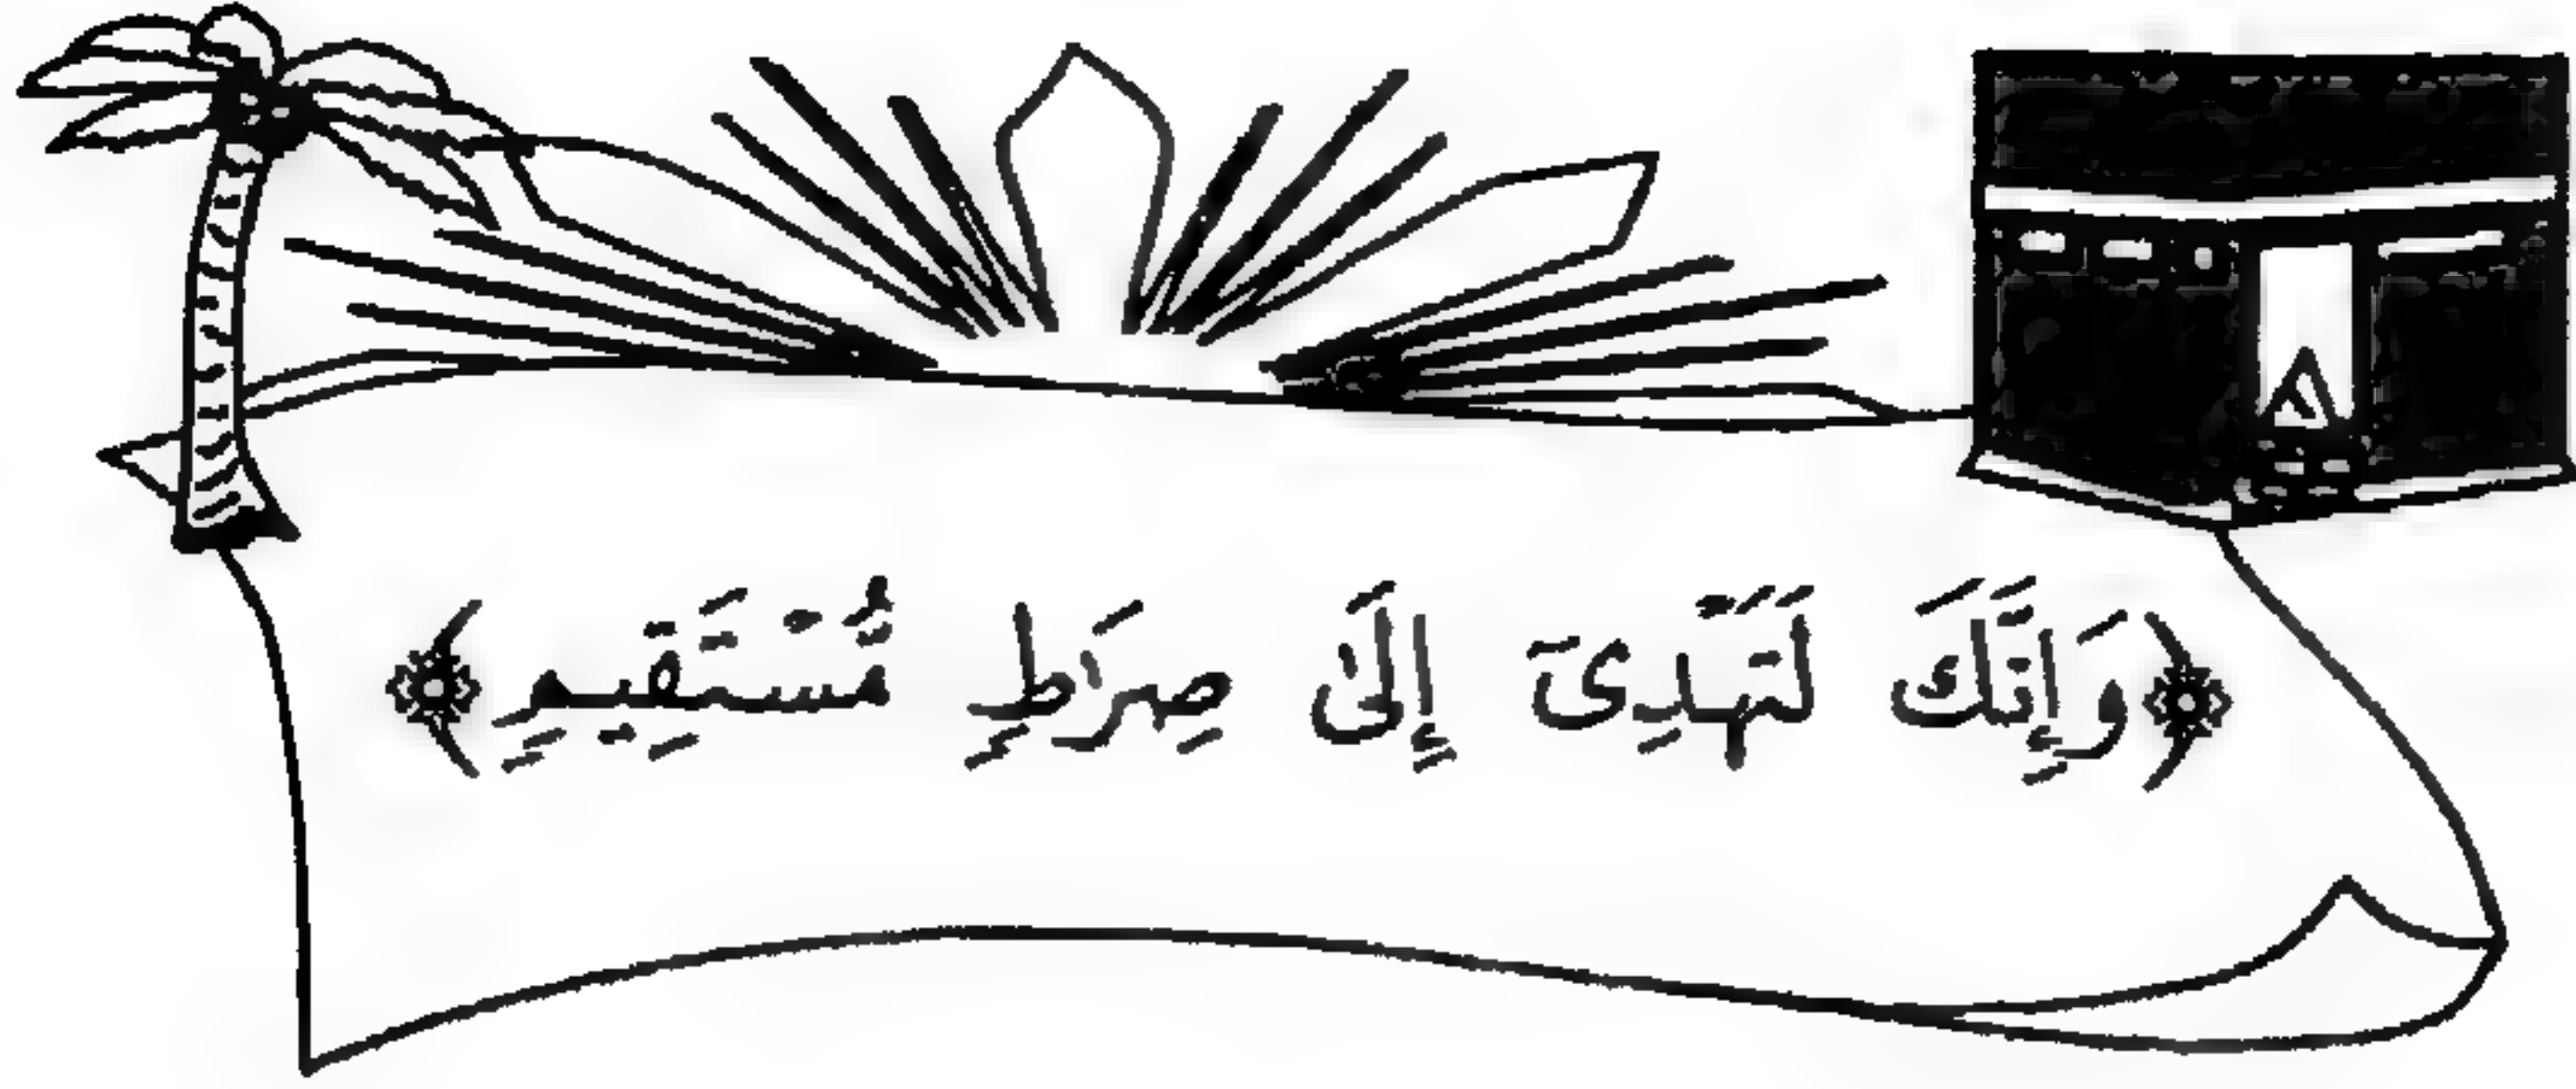 ﴿وَإِنَّكَ لَتَهْدِىٓ إِلَىٰ صِرَٰطٍ مُّسْتَقِيمٍ﴾